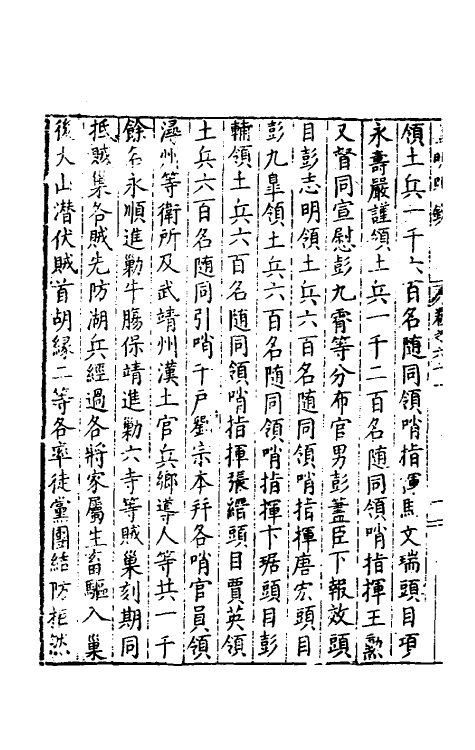 皇明馭倭錄 卷之六
領土兵一千六百名随同領哨指揮馬文瑞頭目項
永壽嚴謹領土兵一千二百名随同領哨指揮王勲
又督同宣慰彭九霄等分布官男彭藎臣下報效頭
目彭志明領土兵六百名随同領哨指揮唐宏頭目
彭九臯領土兵六百名随同領哨指揮卞琚頭目彭
輔領土兵六百名随同領哨指揮張縉頭目賈英領
土兵六百名随同引哨千戶劉宗本幷各哨官員領
潯州等衛所及武靖州漢土官兵鄉導人等共一千
餘名永順進勦牛腸保靖進勦六寺等賊巢刻期同
抵賊巢各賊先防湖兵經過各將家屬生畜驅入巢
後大山潜伏賊首胡縁二等各率徒黨團結防拒然